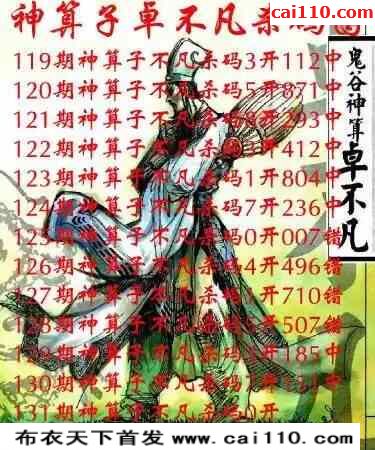 cai110.com
神算子卓不凡杀码图
119期神算子不凡杀码3开112中
120期神算子不凡杀码5开871中
121期神算子不凡杀码开293中
122期神算子不凡杀码开412中
123期神算子不凡杀码1开804中
124期神算子不凡杀码7开236中
125期神算子不凡杀码0开007错
126期神算子不凡杀码4开496错
127期神算子不凡杀码开710错
128期神算子不凡杀码5开507错
129期神算子不凡杀码开185中
130期神算子不凡杀码开中
131期神算子不凡杀码0开
鬼谷神算
卓不凡
布衣天下首发 www.cai110.com